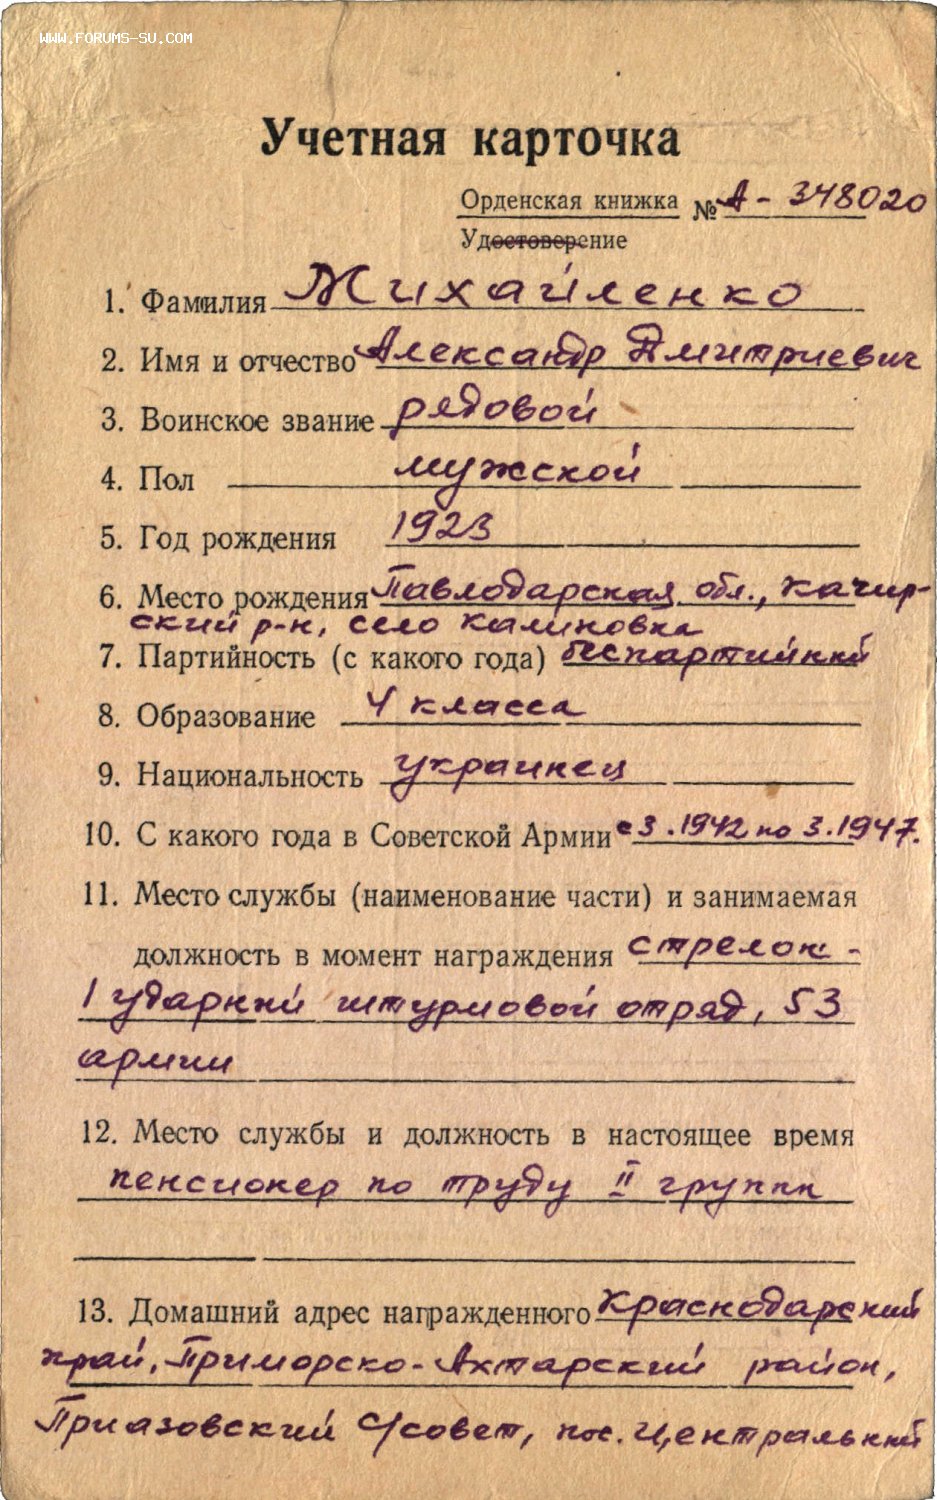 WWW.FORUMS-SU.COM
Учетная карточка
Орденская книжка № А - 348020
Удостоверение
1. Фамилия Михайленко
2. Имя и отчество Александр Дмитриевич
3. Воинское звание рядовой
4. Пол мужской
5. Год рождения 1923
6. Место рождения Павлодарская обл., Качир-
ский р-н, село Калиновка
7. Партийность (с какого года) беспартийный
8. Образование 4 класса
9. Национальность украинец
10. С какого года в Советской Армии с 3.1942 по 3.1947.
11. Место службы (наименование части) и занимаемая
должность в момент награждения стрелок -
1 ударный штурмовой отряд, 53
армии
12. Место службы и должность в настоящее время
пенсионер по труду II группы
13. Домашний адрес награжденного Краснодарский
край, Приморско-Ахтарский район,
Приазовский с/совет, пос. Центральный